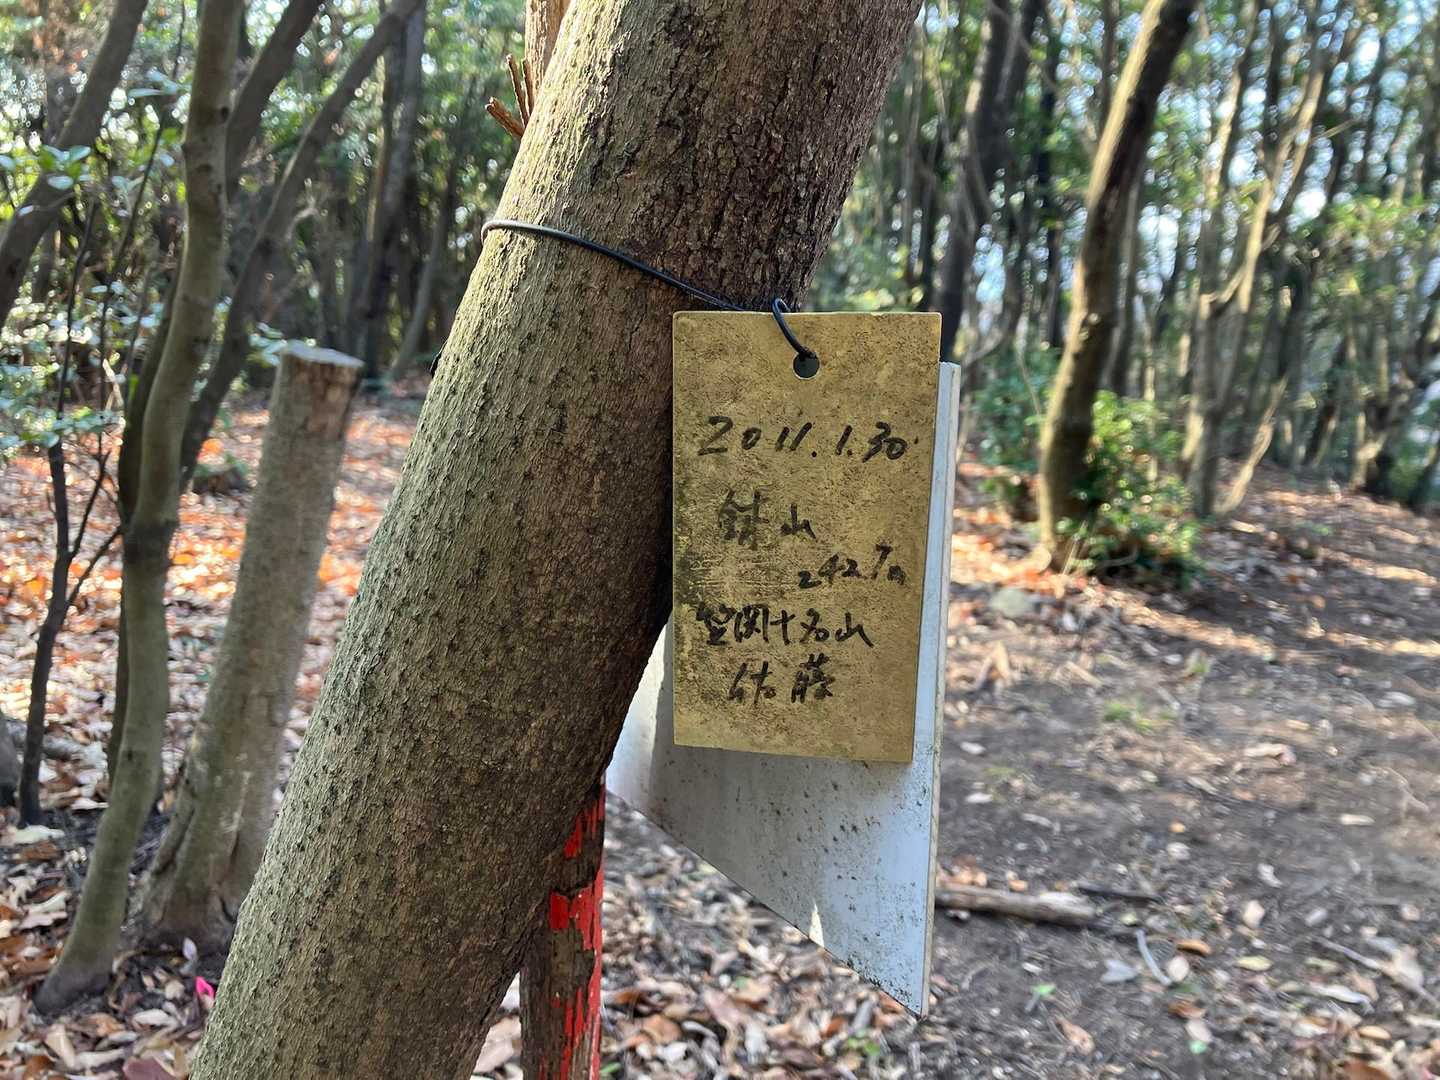 2011.1.30
鉢山
242.7m
笠岡十名山
佐藤